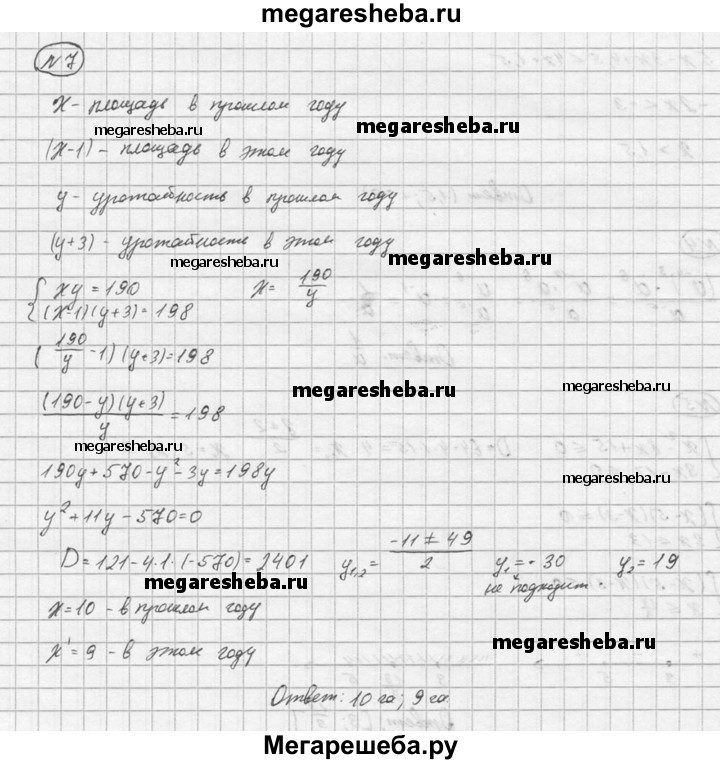 megaresheba.ru
№7
x - площадь в прошлом году
megaresheba.ru
megaresheba.ru
(x-1) - площадь в этом году
y - урожайность в прошлом году
(y+3) - урожайность в этом году
megaresheba.ru
megaresheba.ru
{ xy = 190 x = 190/y
(x-1)(y+3) = 198
(190/y - 1)(y+3) = 198
megaresheba.ru
megaresheba.ru
(190-y)(y+3)/y = 198
megaresheba.ru
190y + 570 - y² - 3y = 198y
megaresheba.ru
y² + 11y - 570 = 0
D = 121 - 4·1·(-570) = 2401 y₁,₂ = -11 ± 49/2 y₁ = -30 y₂ = 19
megaresheba.ru
не подходит
x = 10 - в прошлом году
megaresheba.ru
x' = 9 - в этом году
Ответ: 10 га; 9 га.
Мегарешеба.ру